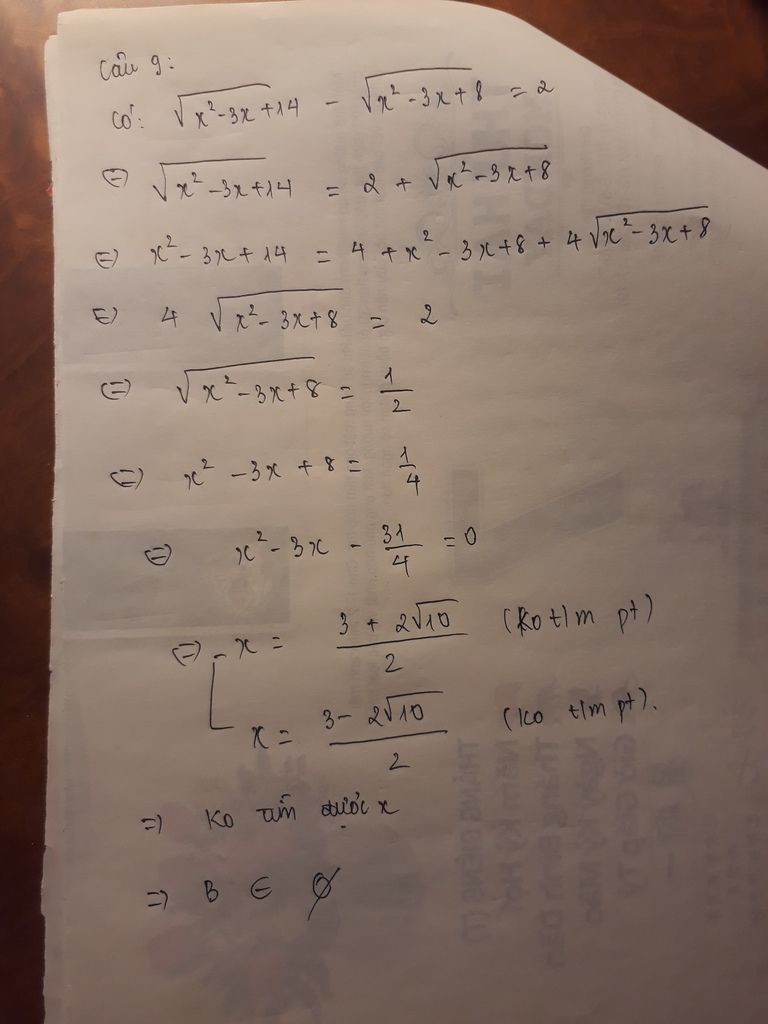 Câu 9:
Có: √(x² - 3x + 14) - √(x² - 3x + 8) = 2
⇔ √(x² - 3x + 14) = 2 + √(x² - 3x + 8)
⇔ x² - 3x + 14 = 4 + x² - 3x + 8 + 4√(x² - 3x + 8)
⇔ 4 √(x² - 3x + 8) = 2
⇔ √(x² - 3x + 8) = 1/2
⇔ x² - 3x + 8 = 1/4
⇔ x² - 3x - 31/4 = 0
⇔ x = (3 + 2√10)/2 (Ko t/m pt)
x = (3 - 2√10)/2 (Ko t/m pt).
⇒ Ko tìm được x
⇒ B ∈ ∅